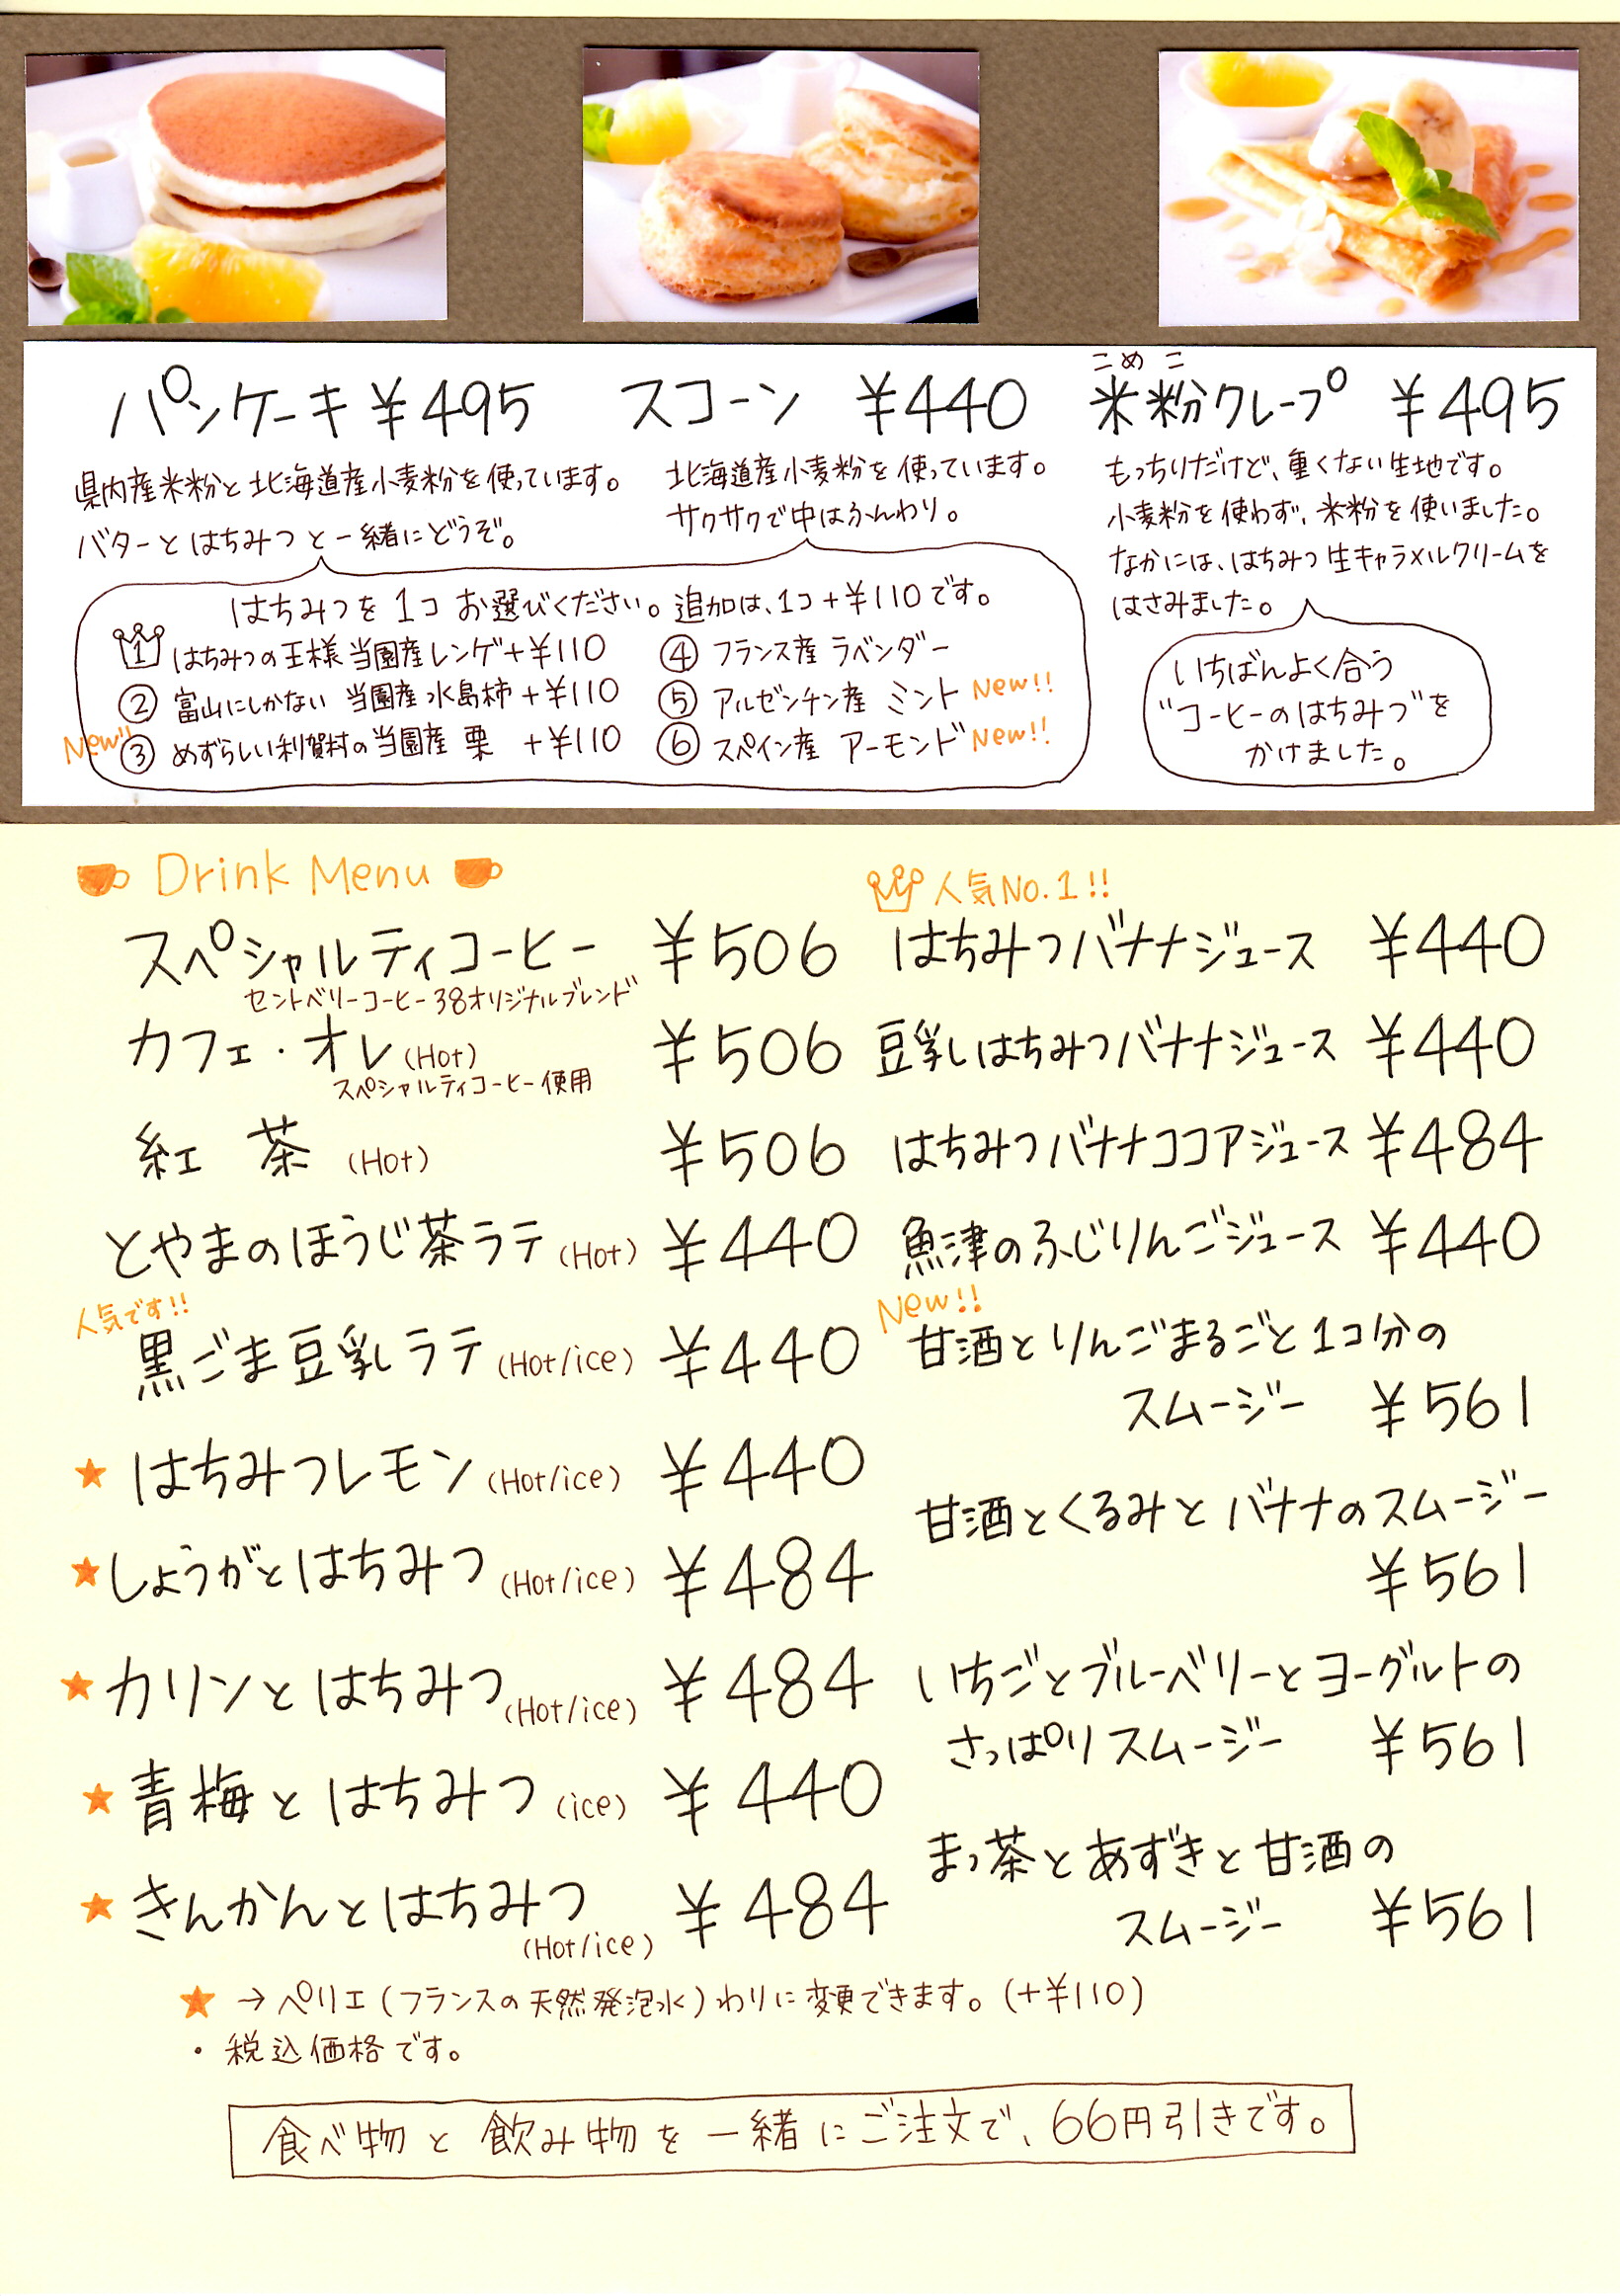 パンケーキ ¥495
県内産米粉と北海道産小麦粉を使っています。
バターとはちみつと一緒にどうぞ。
スコーン ¥440
北海道産小麦粉を使っています。
サクサクで中はふんわり。
はちみつを1コお選びください。追加は、1コ+¥110です。
1 はちみつの王様 当園産レンゲ+¥110
② 富山にしかない 当園産水島柿 +¥110
New!! ③ めずらしい利賀村の当園産 栗 +¥110
④ フランス産 ラベンダー
⑤ アルゼンチン産 ミント New!!
⑥ スペイン産 アーモンド New!!
こめこ
米粉クレープ ¥495
もっちりだけど、重くない生地です。
小麦粉を使わず、米粉を使いました。
なかには、はちみつ生キャラメルクリームを
はさみました。
いちばんよく合う
"コーヒーのはちみつ"を
かけました。
Drink Menu
スペシャルティコーヒー ¥506
セントベリーコーヒー38オリジナルブレンド
カフェ・オレ(Hot) ¥506
スペシャルティコーヒー使用
紅茶 (Hot) ¥506
とやまのほうじ茶ラテ (Hot) ¥440
人気です!!
黒ごま豆乳ラテ (Hot/ice) ¥440
★ はちみつレモン (Hot/ice) ¥440
★ しょうがとはちみつ (Hot/ice) ¥484
★ カリンとはちみつ (Hot/ice) ¥484
★ 青梅とはちみつ (ice) ¥440
★ きんかんとはちみつ ¥484
(Hot/ice)
人気No.1!!
はちみつバナナジュース ¥440
豆乳はちみつバナナジュース ¥440
はちみつバナナココアジュース ¥484
魚津のふじりんごジュース ¥440
New!!
甘酒とりんごまるごと1コ分の
スムージー ¥561
甘酒とくるみとバナナのスムージー
¥561
いちごとブルーベリーとヨーグルトの
さっぱりスムージー ¥561
まっ茶とあずきと甘酒の
スムージー ¥561
★ → ペリエ(フランスの天然発泡水)わりに変更できます。(+¥110)
・税込価格です。
食べ物と飲み物を一緒にご注文で、66円引きです。